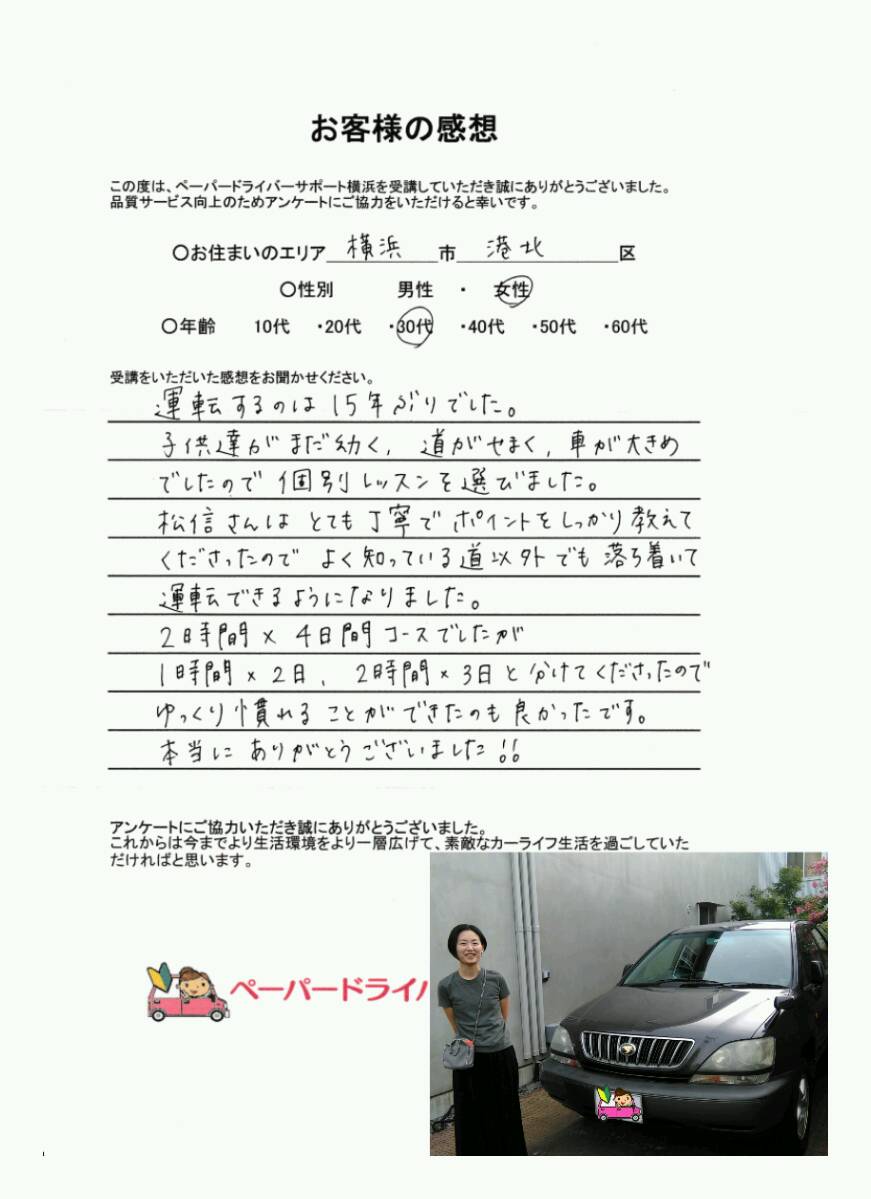 お客様の感想
この度は、ペーパードライバーサポート横浜を受講していただき誠にありがとうございました。
品質サービス向上のためアンケートにご協力をいただけると幸いです。
〇お住まいのエリア 横浜 市 港北 区
〇性別 男性 ・ 女性
〇年齢 10代 ・20代 ・30代 ・40代 ・50代 ・60代
受講をいただいた感想をお聞かせください。
運転するのは15年ぶりでした。
子供達がまだ幼く、道がせまく、車が大きめ
でしたので個別レッスンを選びました。
松信さんはとても丁寧でポイントをしっかり教えて
くださったので よく知っている道以外でも落ち着いて
運転できるようになりました。
2時間×4日間コースでしたが
1時間×2日、2時間×3日と分けてくださったので
ゆっくり慣れることができたのも良かったです。
本当にありがとうございました!!
アンケートにご協力いただき誠にありがとうございました。
これからは今までより生活環境をより一層広げて、素敵なカーライフ生活を過ごしていた
だければと思います。
ペーパードライバ